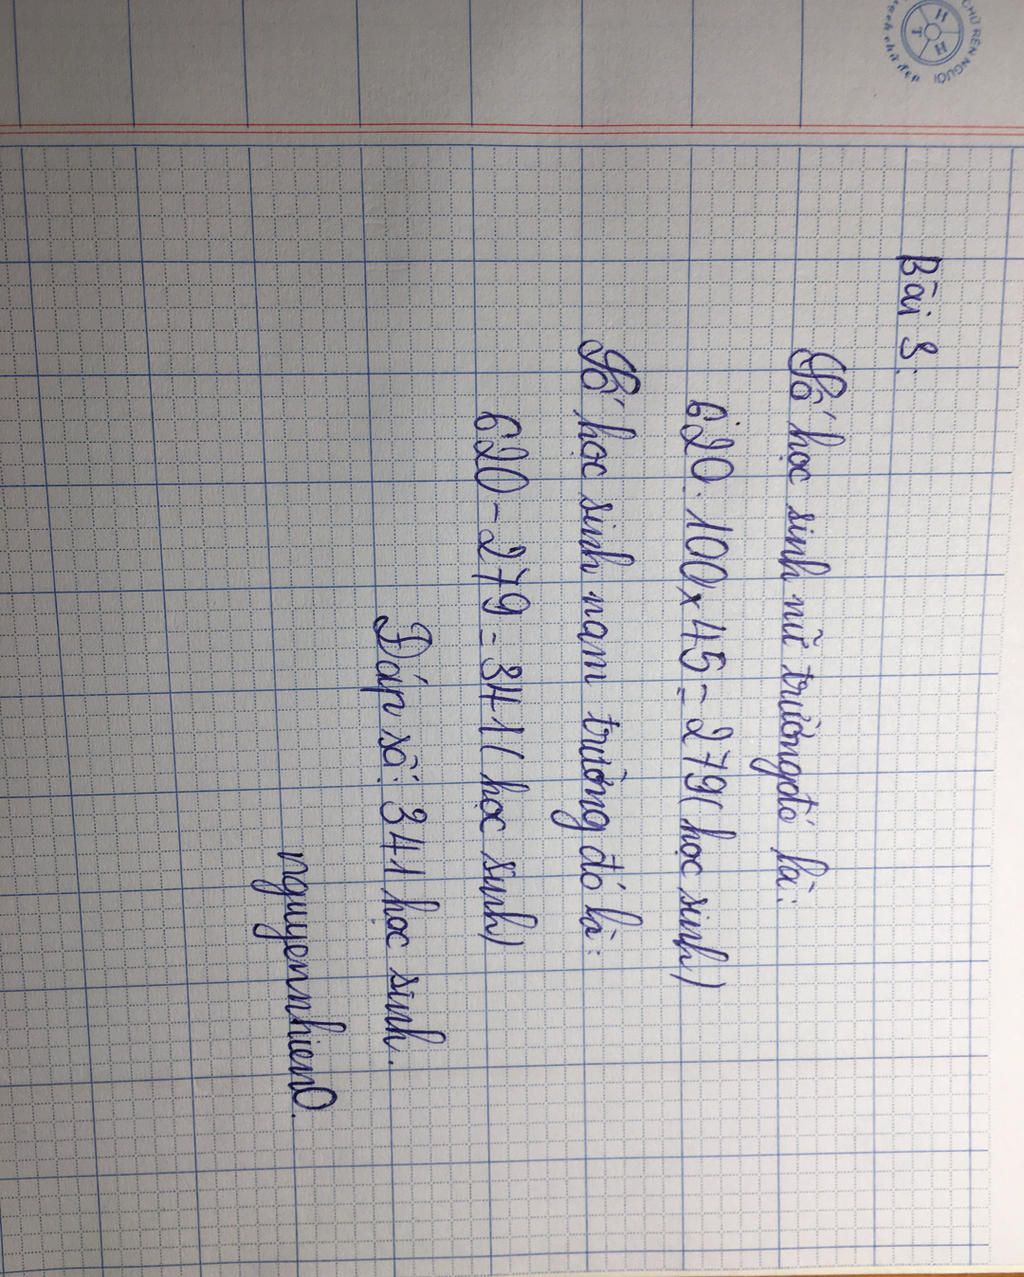 Bài 3:
Số học sinh nữ trường đó là:
620 : 100 × 45 = 279 ( học sinh )
Số học sinh nam trường đó là:
620 - 279 = 341 ( học sinh )
Đáp số: 341 học sinh.
nguyennhien0.
CHỮ RÈN NGƯỜI
H
T H